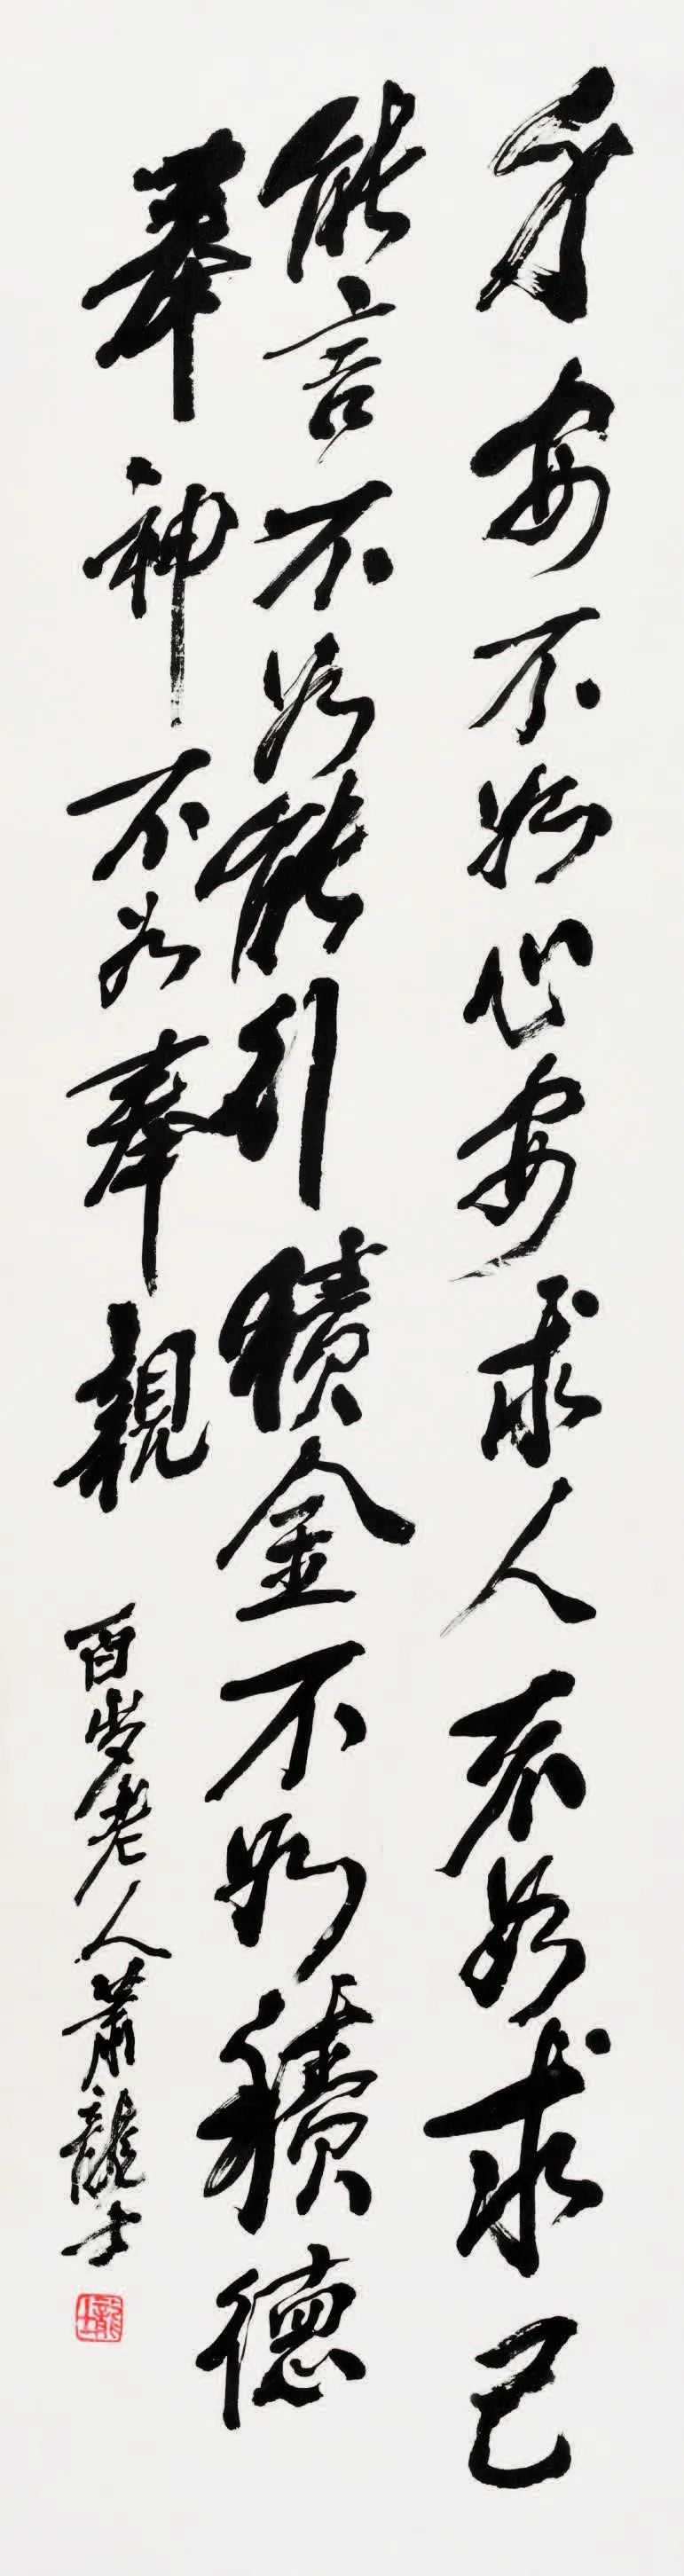 身安不如心安求人不如求己
能言不如能行積金不如積德
奉神不如奉親
百岁老人蕭龍士
龍士